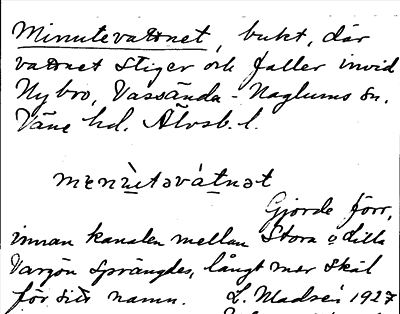 Minutevattnet, bukt, där
vattnet stiger och faller invid
Nybro, Vassända-Naglums sn.
Väne hd. Älvsb. l.
mɛnùtəvátnət
Gjorde förr,
innan kanalen mellan Stora o dilla
Vargön sprängdes, långt mer skäl
för sitt namn. L. Madsén 1927